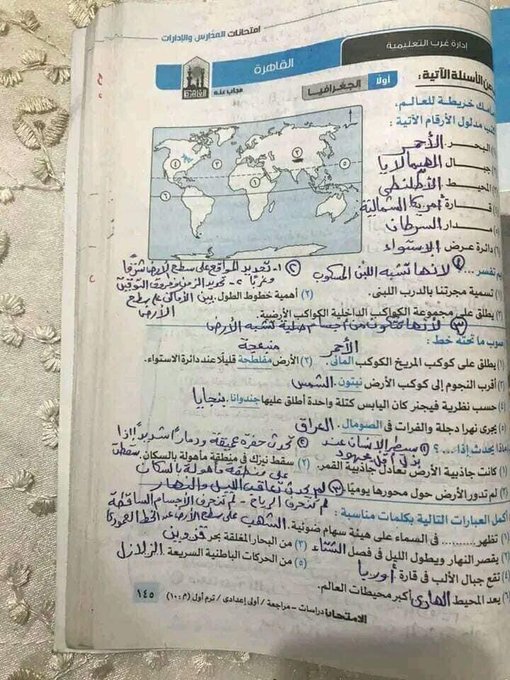 امتحانات المدارس والإدارات
إدارة غرب التعليمية
القاهرة
مجاب عنه
أولًا الجغرافيا
عن الأسئلة الآتية :
خريطة للعالم،
مدلول الأرقام الآتية :
٤ ٣ ٥ ١ ٦
البحر الأحمر
جبال الهيمالايا
المحيط الأطلنطى
قارة أمريكا الشمالية
مدار السرطان
دائرة عرض الاستواء
تفسر
لأنها تشبه اللبن المسكوب
٢ ١- تحديد المواقع على سطح الأرض شرقًا
وغربًا ٢- تحديد الزمن وفروق التوقيت
بين الأماكن على سطح
الأرض
تسمية مجرتنا بالدرب اللبنى. (٢) أهمية خطوط الطول.
يطلق على مجموعة الكواكب الداخلية الكواكب الأرضية.
٣ لأنها تتكون من أجسام صلبة تشبه الأرض
صوب ما تحته خط :
الأحمر
منبعجة
يطلق على كوكب المريخ الكوكب المائى. (٢) الأرض مفلطحة قليلًا عند دائرة الاستواء.
أقرب النجوم إلى كوكب الأرض نبتون. الشمس
حسب نظرية فيجنر كان اليابس كتلة واحدة أطلق عليها جندوانا. بنجايا
يجرى نهرا دجلة والفرات فى الصومال. العراق
ماذا يحدث إذا ...؟
١ سقط الإنسان عند
بذل أقل مجهود
٢ تحدث حفرة عميقة ودمارًا شديدًا إذا
سقطت
كانت جاذبية الأرض تعادل جاذبية القمر. (٢) سقط نيزك فى منطقة مأهولة بالسكان.
على منطقة مأهولة بالسكان
لم تدور الأرض حول محورها يوميًا. ٣ لم يحدث تعاقب الليل والنهار
لم تنحرف الرياح - لم تنحرف الأجسام الساقطة
على سطح الأرض عند الخط العمودى
أكمل العبارات التالية بكلمات مناسبة :
تظهر ......... فى السماء على هيئة سهام ضوئية. الشهب
يقصر النهار ويطول الليل فى فصل الشتاء (٣) من البحار المغلقة بحر قزوين
تقع جبال الألب فى قارة أوربا (٥) من الحركات الباطنية السريعة الزلازل
يعد المحيط الهادى أكبر محيطات العالم.
الامتحان دراسات - مراجعة / أولى إعدادى / ترم أول (م ١٠٠)
١٤٥